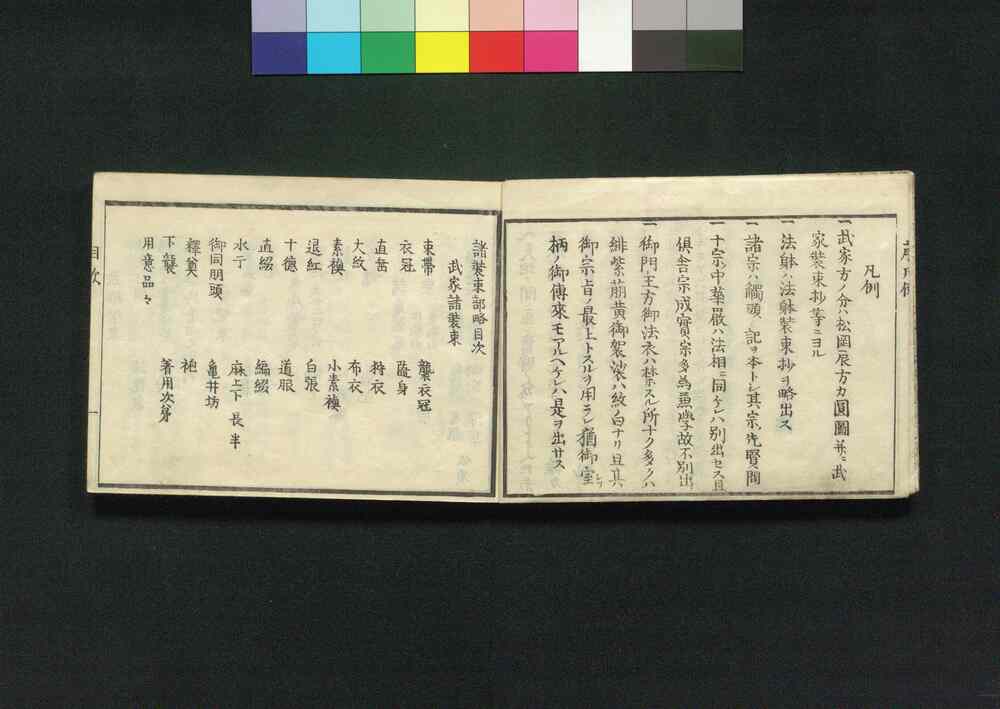 凡例
一 武家方ノ分ハ松岡辰方カ圓圖并ニ武
家裝束抄等ニヨル
一 法躰ハ法躰裝束抄ヲ略出ス
一 諸宗ハ觸頭ノ記ヲ本トシ其宗ノ先賢ニ問
一 十宗中華嚴ハ法相ニ同ケレハ別出セス且
倶舎宗成實宗多為兼學故不別出
一 御門主方御法衣ハ禁スル所ナク多クハ
緋紫萠黄御袈裟ハ紋白ナリ且其
御宗旨ノ最上トスルヲ用ラレ猶御室ニヨリ
柄ノ御傳來モアルヘケレハ是ヲ出サス
諸裝束部略目次
武家諸裝束
束帶 襲衣冠
衣冠 隨身
直垂 狩衣
大紋 布衣
素襖 小素襖
退紅 白張
十德 道服
直綴 編綴
水干 麻上下 長 半
御同朋頭 龜井坊
釋奠 袍
下襲 著用次第
用意品々
目次
一